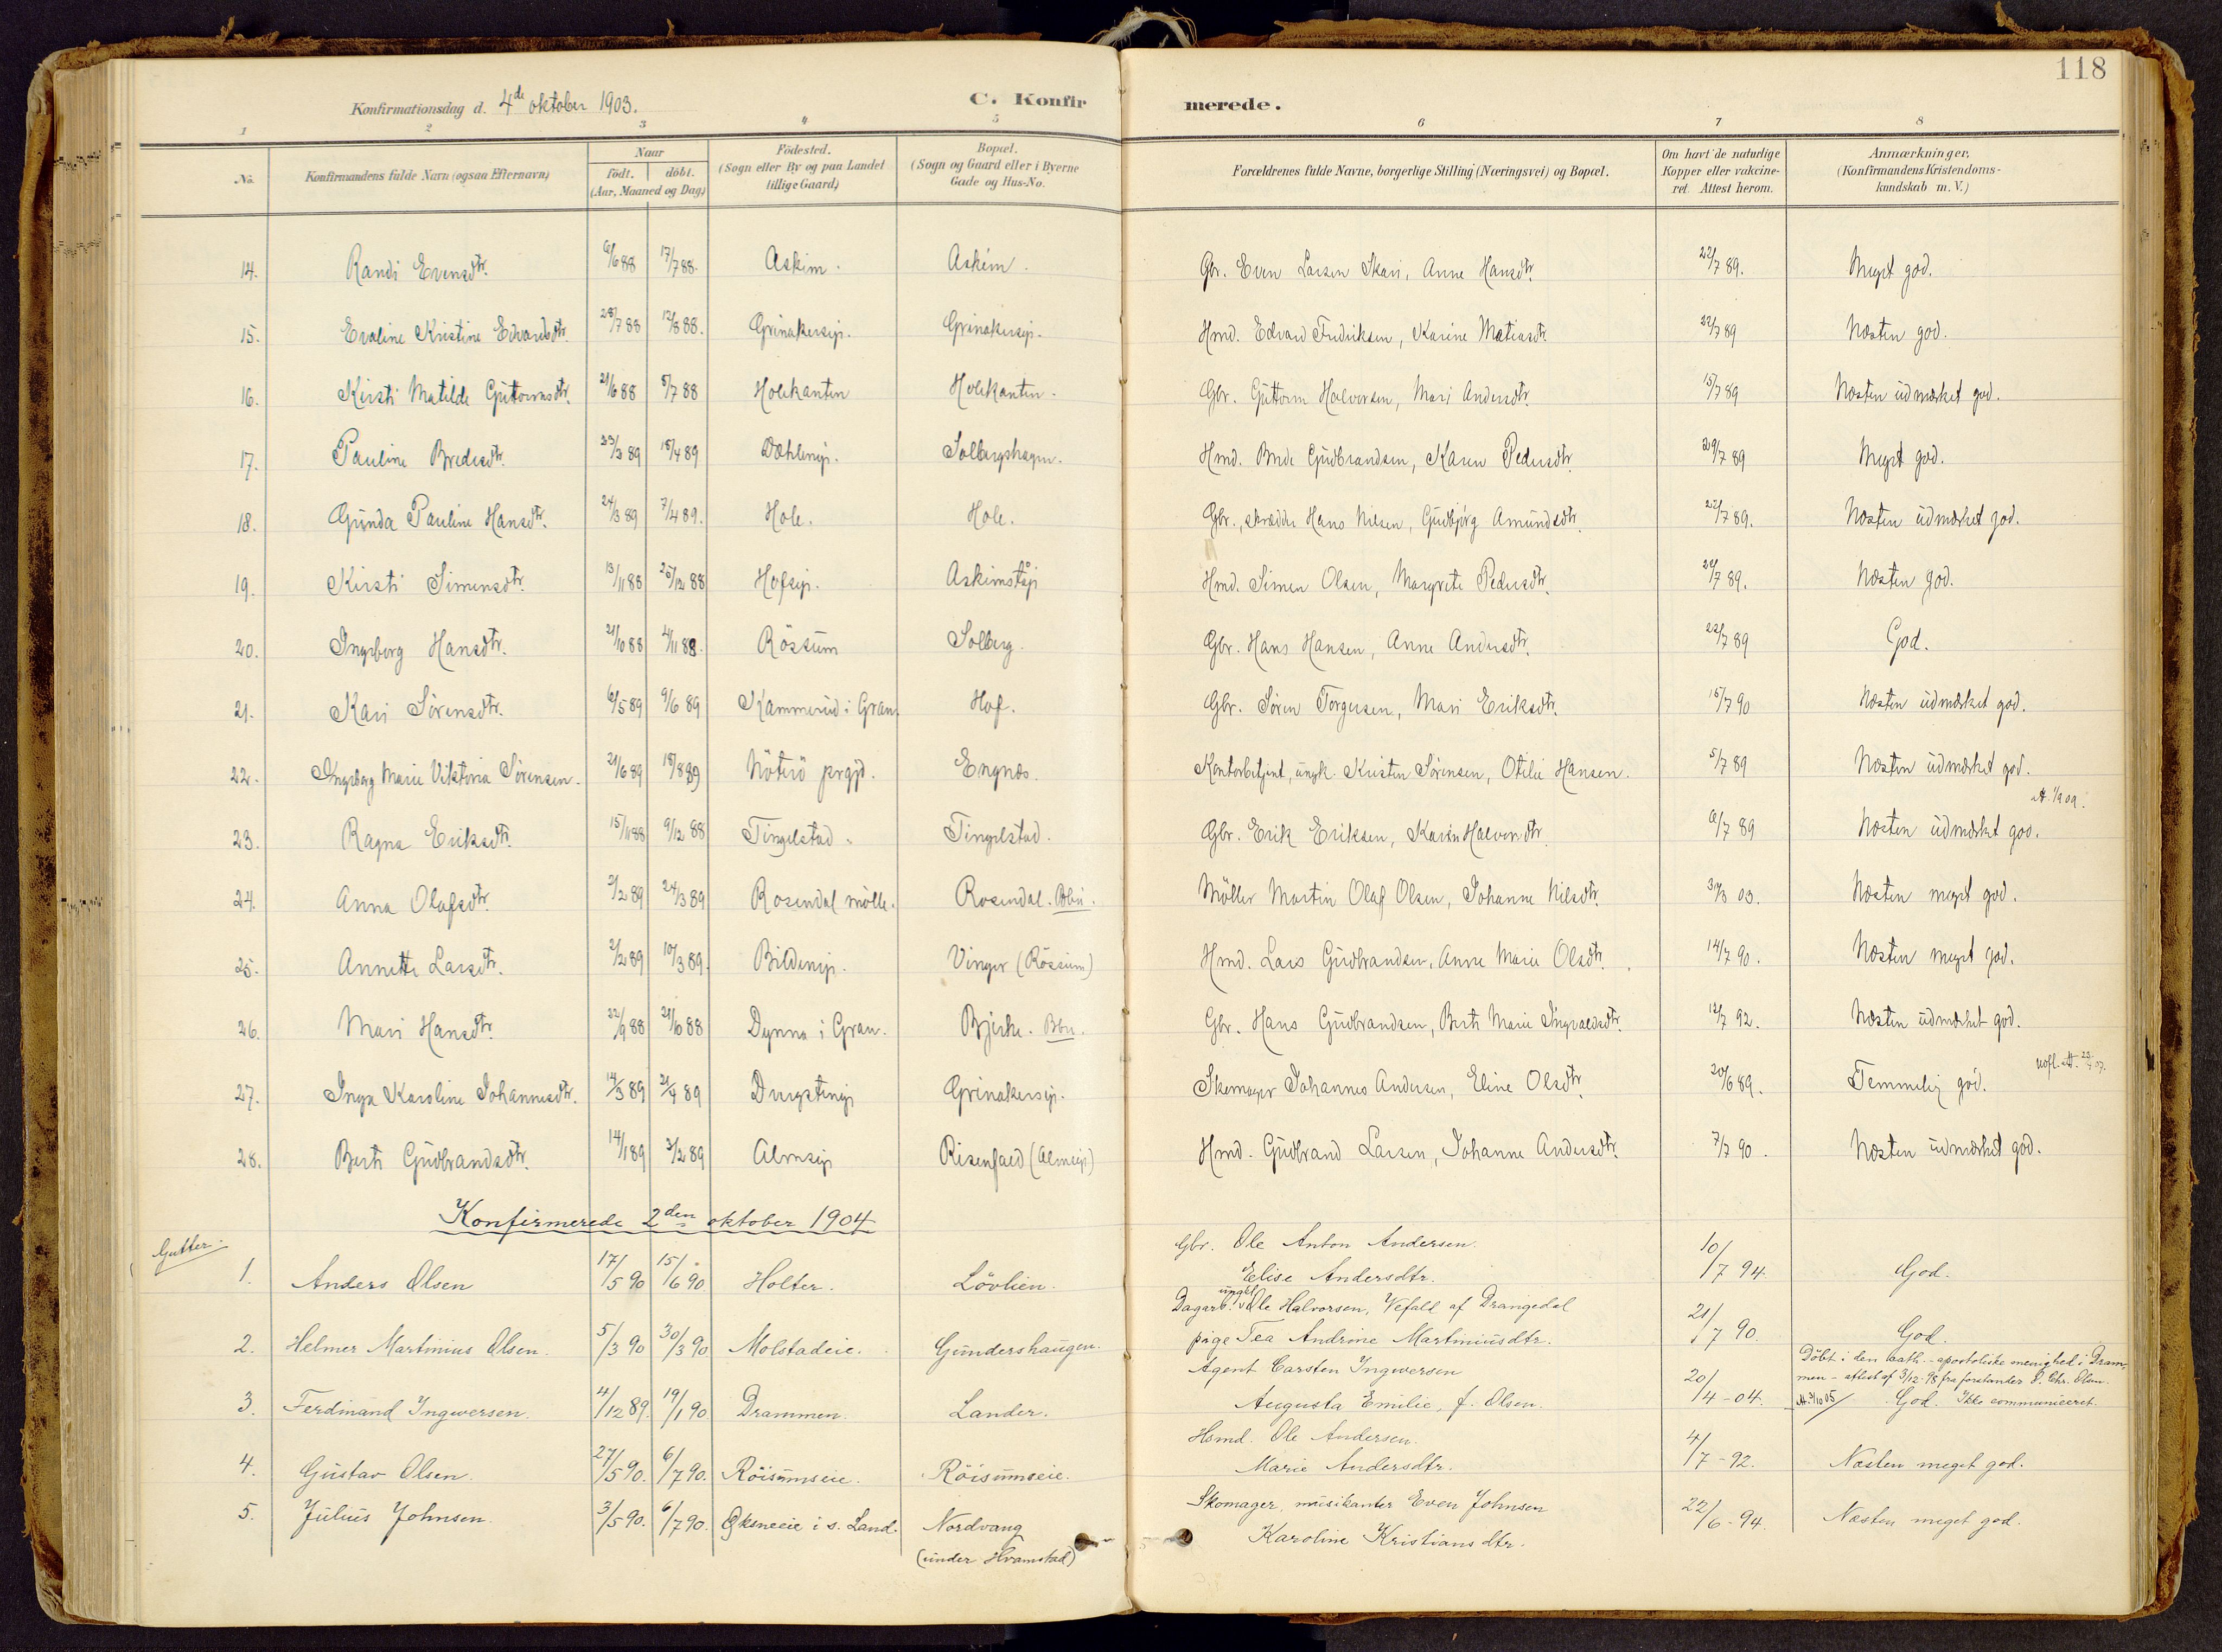 118
Konfirmationsdag d. 4de oktober 1903.
C. Konfirmerede.
1 2 3 4 5 6 7 8
No. Konfirmandens fulde Navn (ogsaa Efternavn) Naar født. døbt. (Aar, Maaned og Dag) Fødested. (Sogn eller By og paa Landet tillige Gaard) Bopæl. (Sogn og Gaard eller i Byerne Gade og Hus-No. Forældrenes fulde Navne, borgerlige Stilling (Næringsvei) og Bopæl. Om havt de naturlige Kopper eller vakcineret. Attest herom. Anmærkninger. (Konfirmandens Kristendomskundskab m. V.)
14. Randi Evensdtr. 6/6 88 17/7 88. Askim. Askim. Gbr. Even Larsen Skari, Anne Hansdtr. 22/7 89. Meget god.
15. Evaline Kristine Edvardsdtr. 28/7 88 12/8 88. Grinakerseje. Grinakerseje. Hmd. Edvard Fredriksen, Karine Matiasdtr. 22/7 89 Næsten god.
16. Kirsti Matilde Guttormsdtr. 21/6 88 5/7 88 Holekanten Holekanten. Gbr. Guttorm Halvorsen, Mari Andersdtr. 15/7 89 Næsten udmærket god.
17. Pauline Bredesdtr. 23/3 89 15/4 89 Dæhleneje. Solbergshagen. Hmd. Brede Gudbrandsen, Karen Pedersdtr. 29/7 89 Meget god.
18. Gunda Pauline Hansdtr. 24/3 89 7/4 89. Hole. Hole. Gbr., skrædder Hans Nilsen, Gudbjørg Amundsdtr. 22/7 89. Næsten udmærket god.
19. Kirsti Simensdtr. 13/11 88 26/12 88 Hofseje. Askimstøj Hmd. Simen Olsen, Margrete Pedersdtr. 29/7 89. Næsten god.
20. Ingeborg Hansdtr. 21/10 88 4/11 88. Røssum Solberg. Gbr. Hans Hansen, Anne Andersdtr. 22/7 89 God.
21. Kari Sørensdtr. 6/5 89 9/6 89 Kammerud i Gran. Hof. Gbr. Søren Torgersen, Mari Eriksdtr. 15/7 90 Næsten udmærket god.
22. Ingeborg Marie Viktoria Sørensen. 21/6 89 18/8 89 Nøterø prgjd. Engnæs. Kontorbetjent, ungk. Kristen Sørensen, Otilie Hansen. 5/7 89 Næsten udmærket god.
23. Ragna Eriksdtr. 15/11 88 9/12 88 Tingelstad. Tingelstad. Gbr. Erik Eriksen, Karen Halvorsdtr. 6/7 89 Næsten udmærket god. At. 1/9 09.
24. Anna Olafsdtr. 2/2 89 24/3 89 Rosendal mølle. Rosendal. Bbu. Møller Martin Olaf Olsen, Johanne Nilsdtr. 30/3 03. Næsten meget god.
25. Annette Larsdtr. 2/2 89 10/3 89. Bildeneje. Vinger (Røssum) Hmd. Lars Gudbrandsen, Anne Marie Olsdtr. 14/7 90. Næsten meget god.
26. Mari Hansdtr. 22/9 88 21/10 88 Dynna i Gran. Bjerke. Bbu. Gbr. Hans Gudbrandsen, Berte Marie Ingvaldsdtr. 12/7 92. Næsten udmærket god.
27. Inga Karoline Johannesdtr. 14/3 89 21/4 89 Dvergsteneje Grinakerseje. Skomager Johannes Andersen, Eline Olsdtr. 20/6 89. Temmelig god.
28. Berte Gudbrandsdtr. 14/1 89 3/2 89 Almseje Risenfald (Almseje) Hmd. Gudbrand Larsen, Johanne Andersdtr. 7/7 90. Næsten udmærket god.
Konfirmerede 2den oktober 1904
Gutter.
1. Anders Olsen 17/5 90 15/6 90. Holter. Lövlien. Gbr. Ole Anton Andersen. Elise Andersdtr. 10/7 94. God.
2. Helmer Martinius Olsen. 5/3 90 30/3 90 Molstadeie. Gundershaugen. Dagarb. ungkl. Ole Halvorsen, Vefall af Drangedal pige Tea Andrine Martiniusdtr. 21/7 90. God.
3. Ferdinand Ingwersen. 4/12 89. 19/1 90 Drammen. Lander. Agent Carsten Ingwersen Augusta Emilie, f. Olsen. 20/4 - 04. Döbt i den kath.-apostoliske menighed i Drammen - attest af 3/12-98 fra forstander O. Chr. Olsen. At. 3/10 05/ God. Ikke communiceret.
4. Gustav Olsen. 27/5 90. 6/7 90. Röisumseie. Röisumseie. Hsmd. Ole Andersen. Marie Andersdtr. 4/7 - 92. Næsten meget god.
5. Julius Johnsen. 3/5 90. 6/7 90. Øksneeie i s. Land. Nordvang (under Hvamstad) Skomager, musikanter Even Johnsen Karoline Kristiansdtr. 22/6 - 94. Næsten meget god.